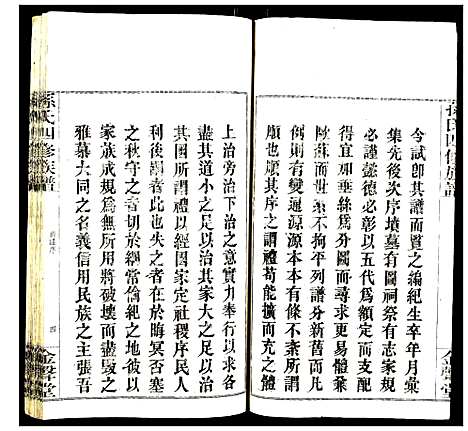 孫氏四修族譜
今試即其譜而置之編紀生卒年月彙
集先後次序墳墓有圖祠祭有志家規
謹若懿德必彰以五代爲額定而支配
得宜如垂絲爲圖而尋求更易不必舉
歐蘇而世表不拘乎列譜分新舊而凡
例則有變遷源源本本有條不紊所謂
順也順其序之謂禮苟能擴而充之體
金聲堂
孫氏四修族譜
上治旁治下治之意實力奉行以求各
盡其道小之足以治其家大之足以治
其國所謂禮以經國家定社稷序民人
利後嗣者此也失之者於晦冥否塞
之秋守之者切於綱常倫紀之地彼以
家族成規爲無所用將破壞而盡變之
雅慕大同之名義信用民族之主張吾
四
金聲堂